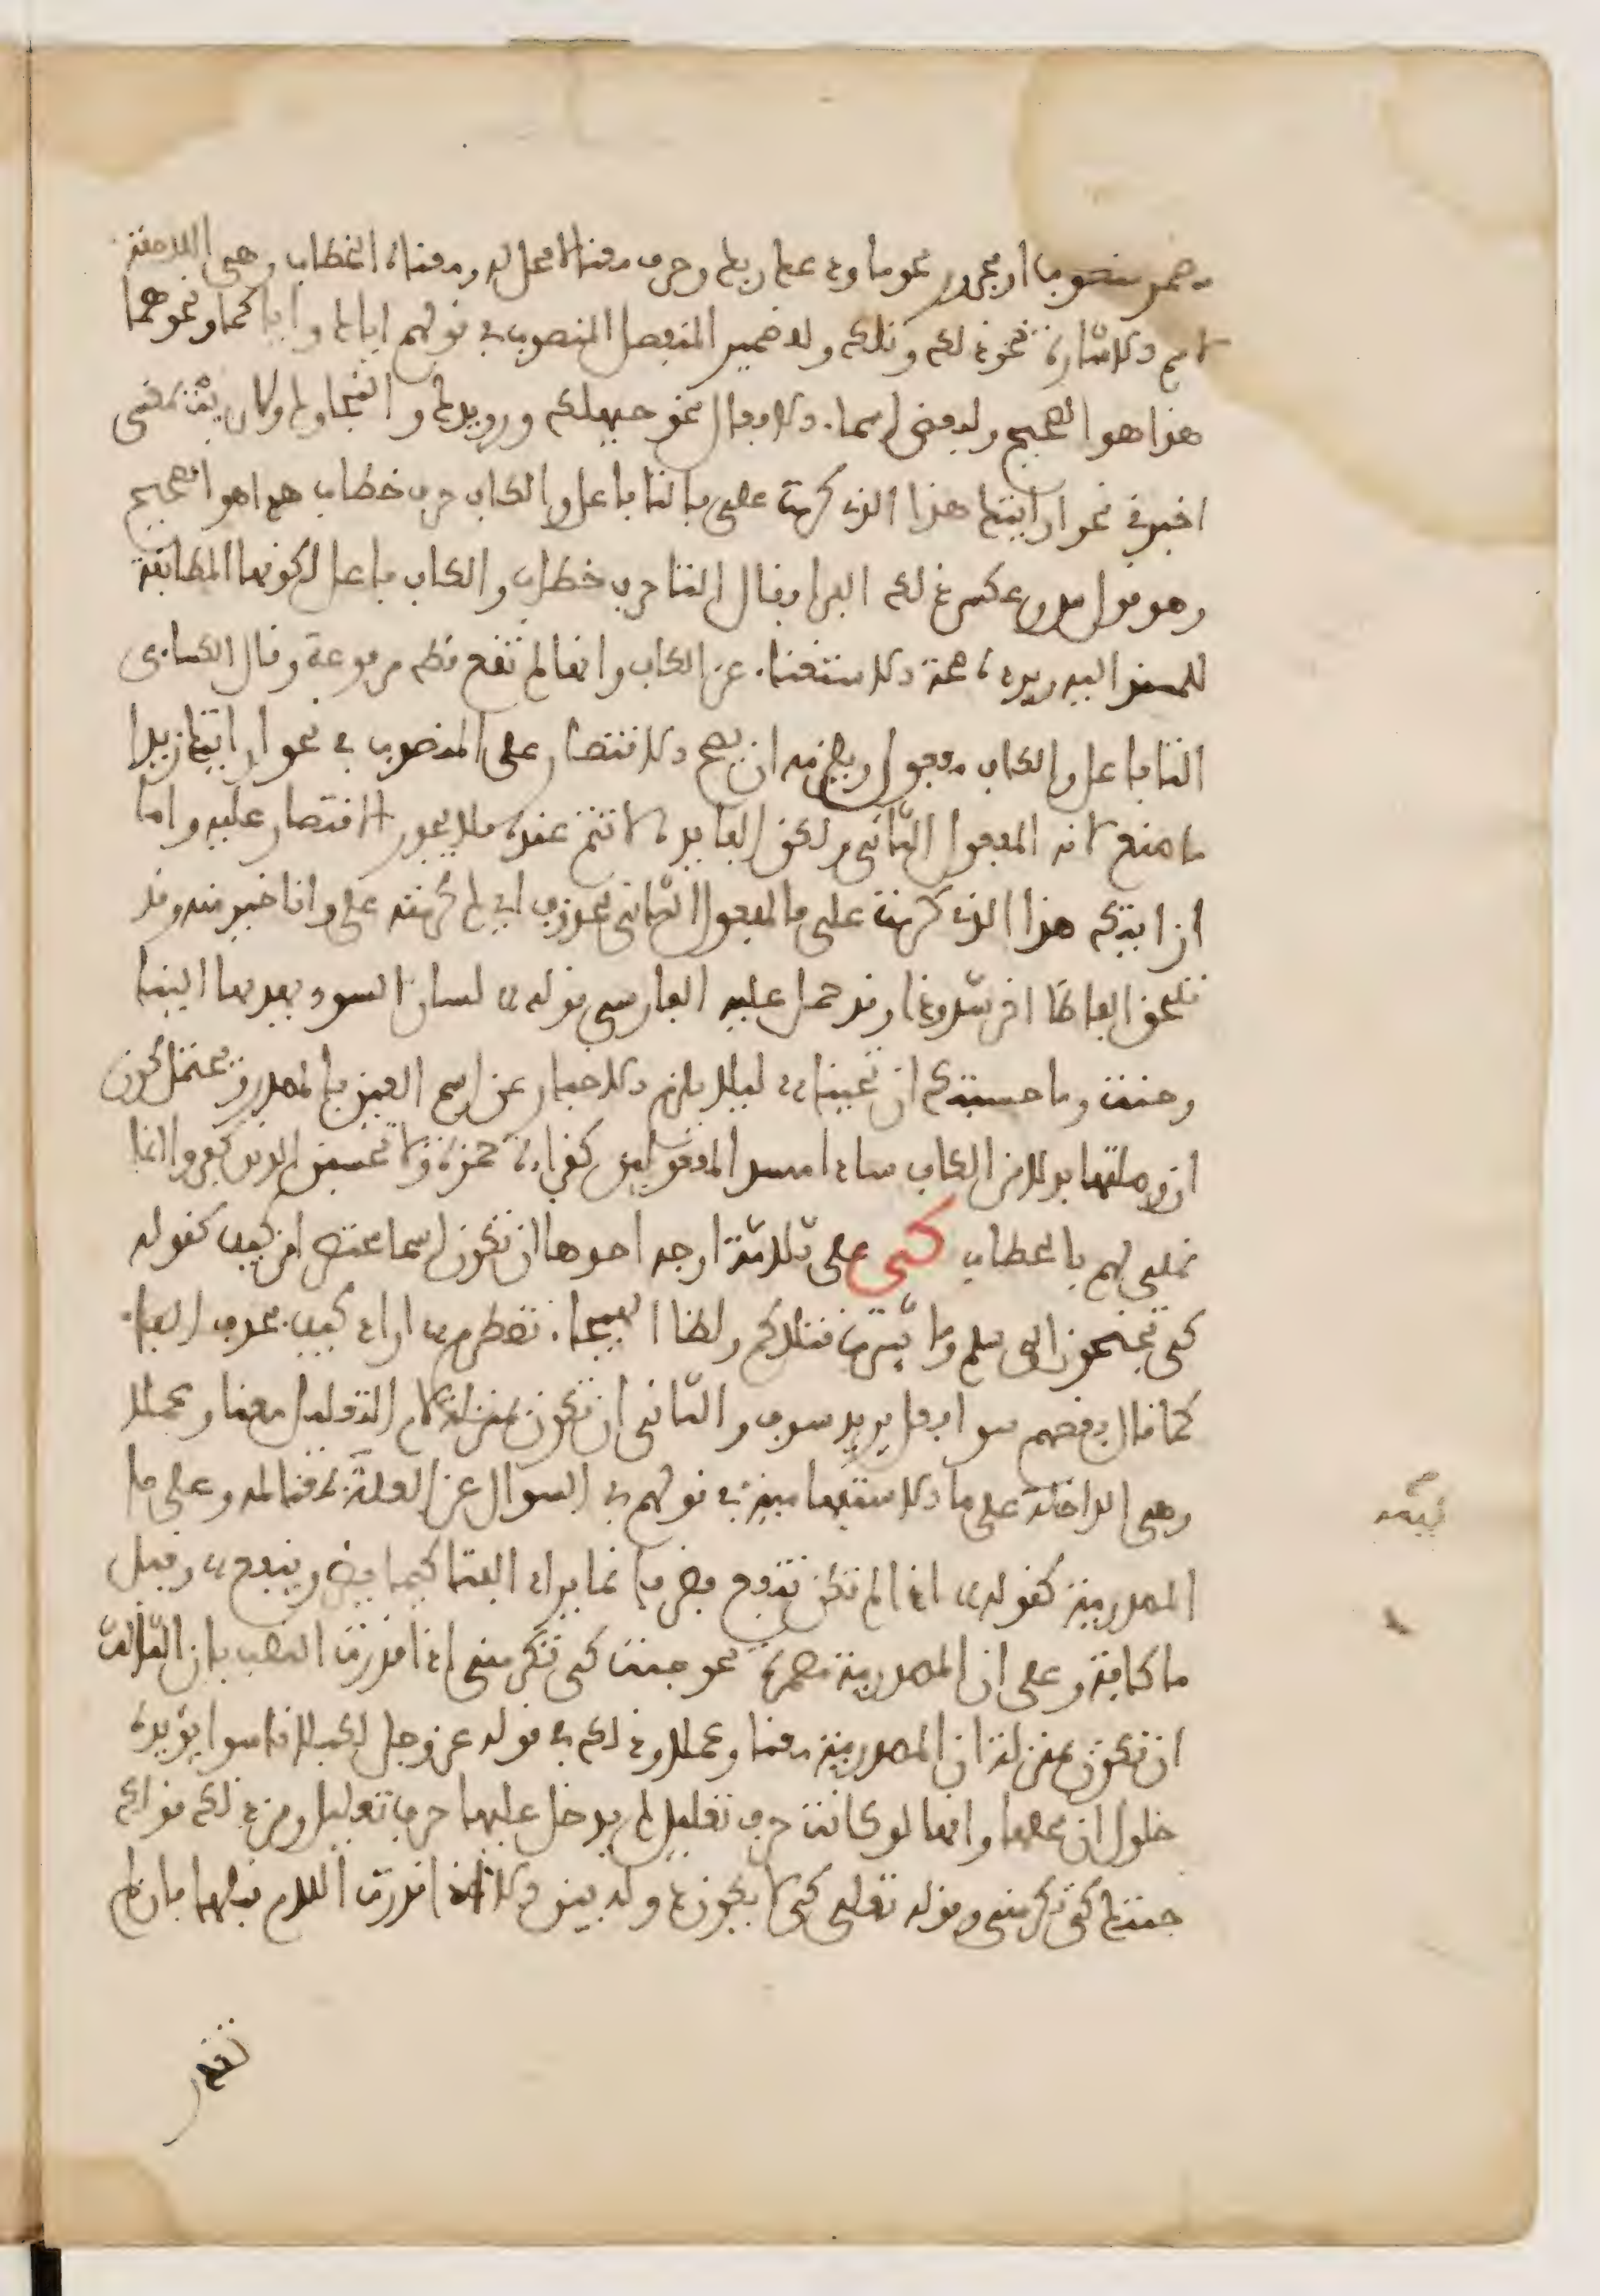 مضمر منصوب او مجرور نحو ما ودعك ربك وحرف معنى لا محل له ومعناه الخطاب وهي اللاحقة
لاسم الاشارة نحو ذلك وتلك وللضمير المنفصل المنصوب في قولهم اياك واياكما ونحوهما
هذا هو الصحيح ولبعض اسماء الافعال نحو حيهلك ورويدك والنجاءك ولارايت بمعنى
اخبرني نحو ارايتك هذا الذي كرمت علي فالتا فاعل والكاف حرف خطاب هذا هو الصحيح
وهو قول س وعكس ذلك الفراء فقال التا حرف خطاب والكاف فاعل لكونها المطابقة
للمسند اليه ويرده صحة الاستغناء عن الكاف وانها لم تقع قط مرفوعة وقال الكساءي
التا فاعل والكاف مفعول ويلزمه ان يصح الاقتصار على المنصوب في نحو ارايتك زيدا
ما صنع لانه المفعول الثاني ولكن الفايدة لا تتم عنده فلا يجوز الاقتصار عليه واما
ارايتك هذا الذي كرمت علي فالمفعول الثاني محذوف اي لم كرمته علي وانا خير منه وقد
تلحق الفاظا اخر شذوذا وقد حمل عليه الفارسي قوله لسان السوء تهديها الينا
وحنت وما حسبتك ان تحينا ليلا يلزم الاخبار عن اسم العين بالمصدر ويحتمل كون
ان وصلتها بدلا من الكاف سادا مسد المفعولين كقراءة حمزة ولا تحسبن الذين كفروا انما
نملي لهم بالخطاب كي على ثلاثة اوجه احدها ان تكون اسما مختصرا من كيف كقوله
كي تجنحون الى سلم وما ثيرت قتلاكم ولظا الهيجاء تضطرم اراد كيف فحذف الفاء
كما قال بعضهم سو افعل يريد سوف والثاني ان تكون بمنزلة لام التعليل معنا وعملا
وهي الداخلة على ما الاستفهامية في قولهم في السوال عن العلة كيمه بمعنا لمه وعلى ما
المصدرية كقوله اذا لم تكن تنفع فضر فانما يراد الفتا كيما يضر وينفع وقيل
ما كافة وعلى ان المصدرية مضمرة نحو جئت كي تكرمني اذا قدرت النصب بان الثالث
ان تكون بمنزلة ان المصدرية معنا وعملا وذلك في قوله عز وجل لكيلا تاسوا يؤيده
حلول ان محلها وانها لو كانت حرف تعليل لم يدخل عليها حرف تعليل ومن ذلك قولك
جئتك كي تكرمني وقوله تعالى كي لا يكون دولة بين الا اذا قدرت اللام قبلها فان لم
تقدر